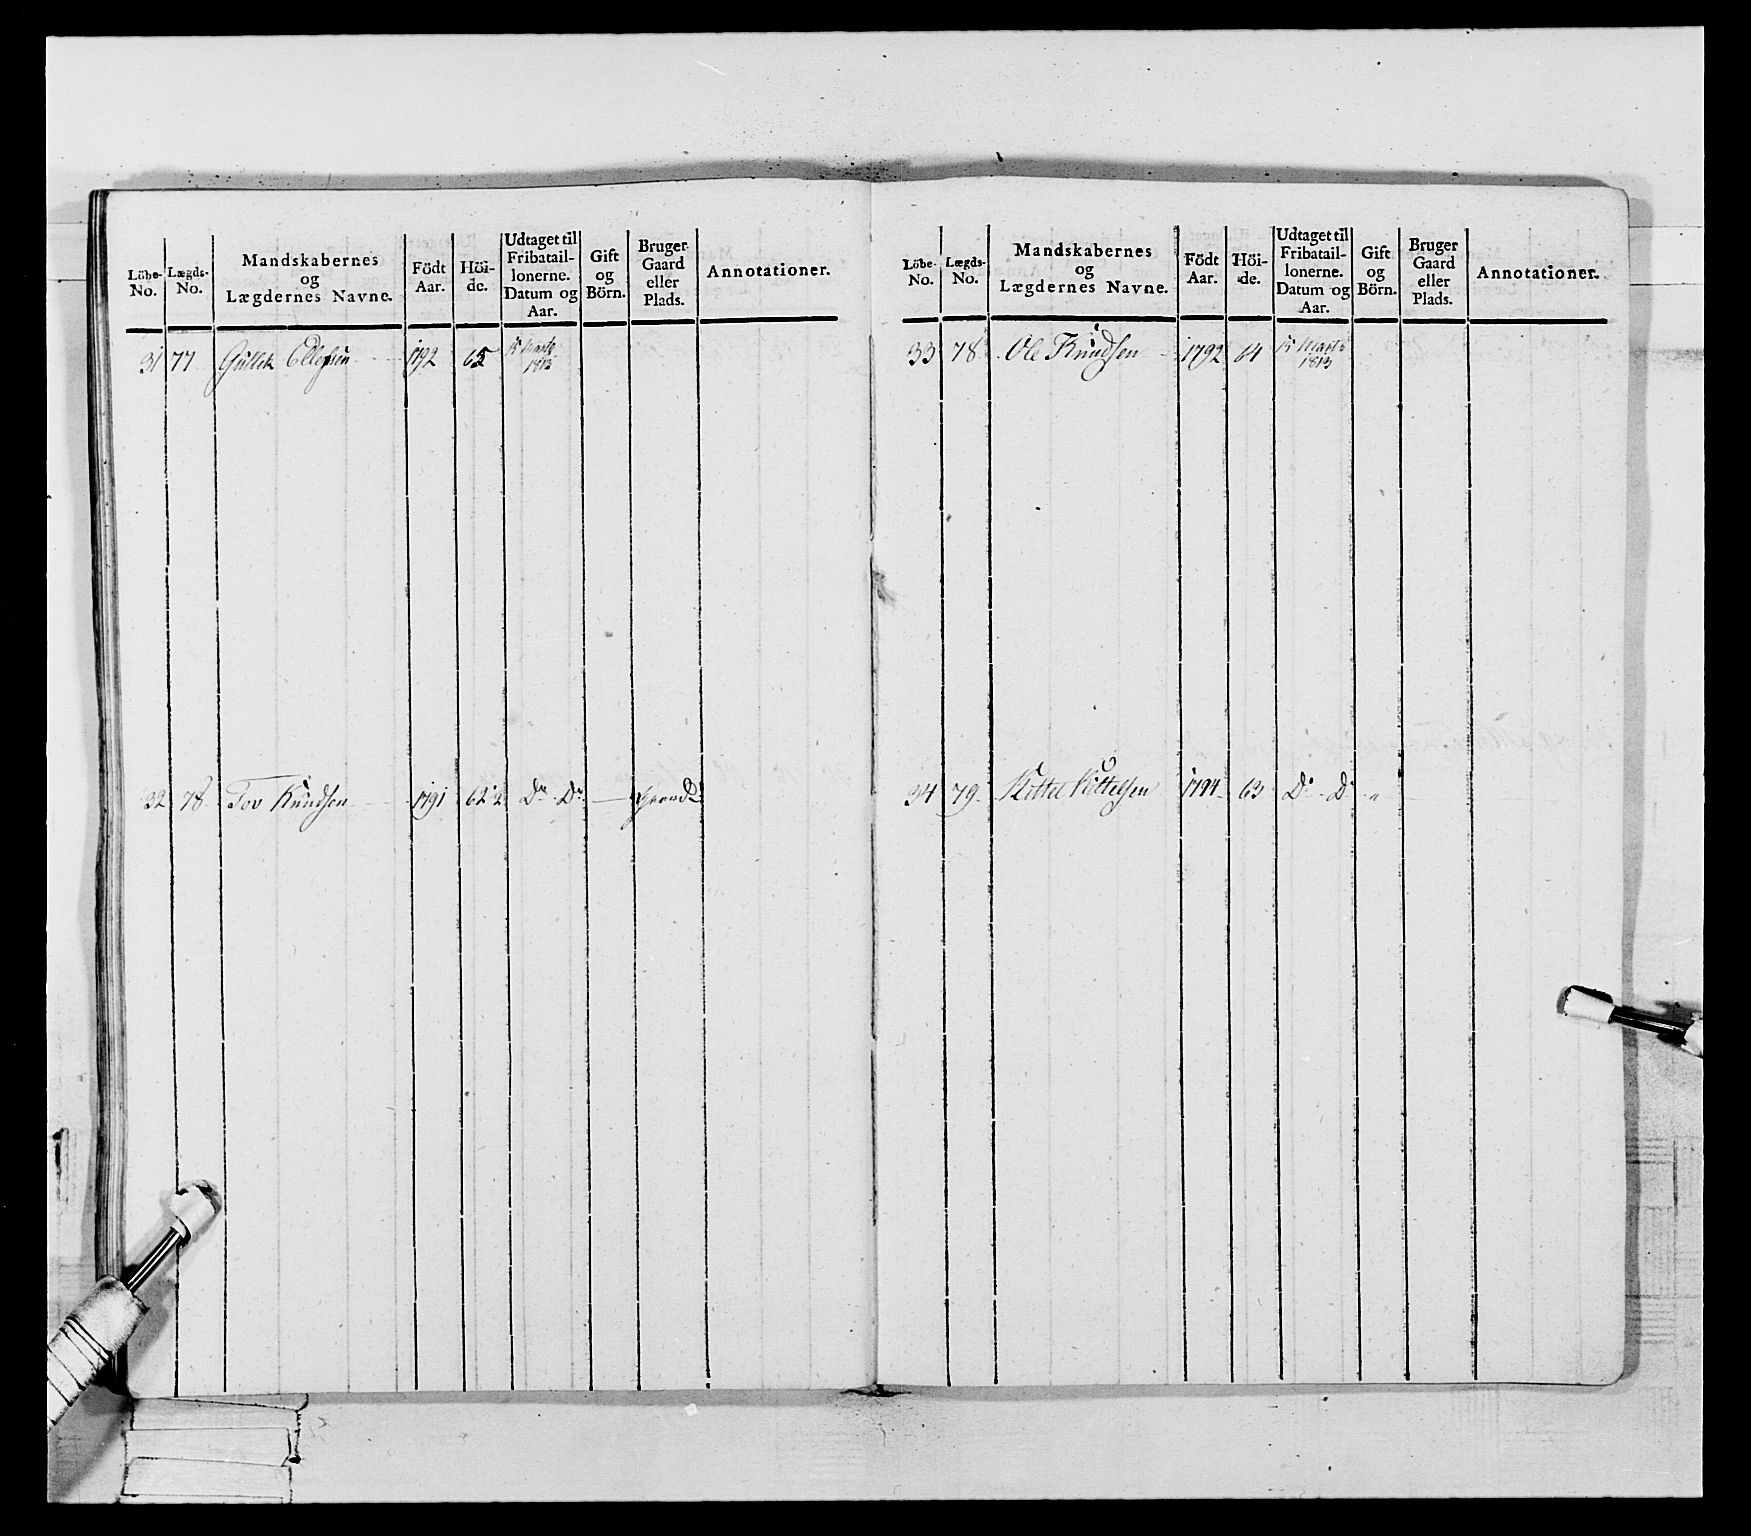 Löbe- No. Lægds- No. Mandskabernes og Lægdernes Navne. Födt Aar. Höi- de. Udtaget til Fribatail- lonerne. Datum og Aar. Gift og Börn. Bruger Gaard eller Plads. Annotationer.
31 77 Gullek Ellefsen 1792 65 15 Marts 1813
32 78 Tov Knudsen 1791 62½ Do Do
Löbe- No. Lægds- No. Mandskabernes og Lægdernes Navne. Födt Aar. Höi- de. Udtaget til Fribatail- lonerne. Datum og Aar. Gift og Börn. Bruger Gaard eller Plads. Annotationer.
33 78 Ole Knudsen 1792 64 15 Marts 1813
34 79 Kittel Kittelsen 1794 63 Do Do "